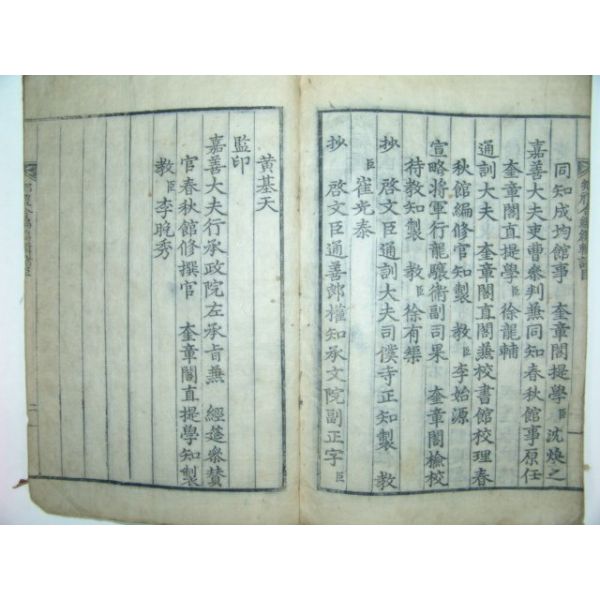 同知成均館事　奎章閣提學臣沈煥之
嘉善大夫吏曹參判兼同知春秋館事原任
奎章閣直提學臣徐龍輔
通訓大夫　奎章閣直閣兼校書館校理春
秋館編修官知製　教臣李始源
宣略將軍行龍驤衛副司果　奎章閣檢校
待教知製　教臣徐有榘
抄　啓文臣通訓大夫司僕寺正知製　教
臣崔光泰
抄　啓文臣通善郎權知承文院副正字臣
黃基天
監印
嘉善大夫行承政院左承旨兼　經筵參贊
官春秋館修撰官　奎章閣直提學知製
教臣李晩秀